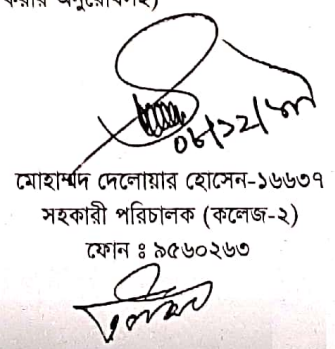 করার অনুরোধসহ)
০৮/১২/
মোহাম্মদ দেলোয়ার হোসেন-১৬৬৩৭
সহকারী পরিচালক (কলেজ-২)
ফোন ঃ ৯৫৬০২৬৩